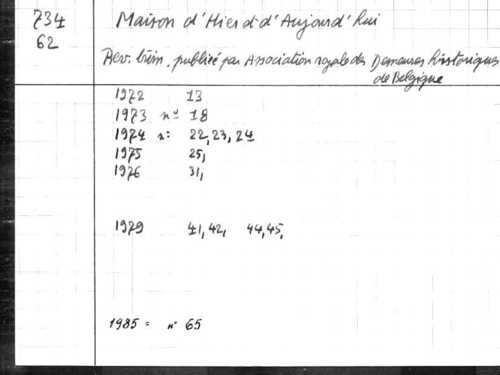 734
62
Maison d'Hier et d'Aujourd'hui
Rev. trim. publiée par Association royale des Demeures historiques
de Belgique
1972 13
1973 n° 18
1974 n: 22, 23, 24
1975 25,
1976 31,
1979 41, 42, 44, 45,
1985 = n° 65